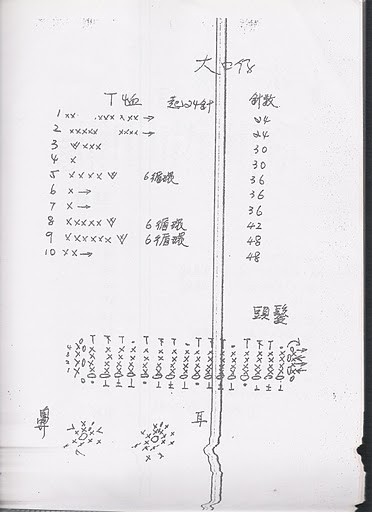 大口仔
T恤 起24針 針數
1 xx .xxx xx → 24
2 xxxxx xxx → 24
3 V xxx 30
4 x 30
5 xxxxx V 6循環 36
6 x → 36
7 x → 36
8 xxxxx V 6循環 42
9 xxxxxx V 6循環 48
10 xx → 48
頭髮
鼻 耳